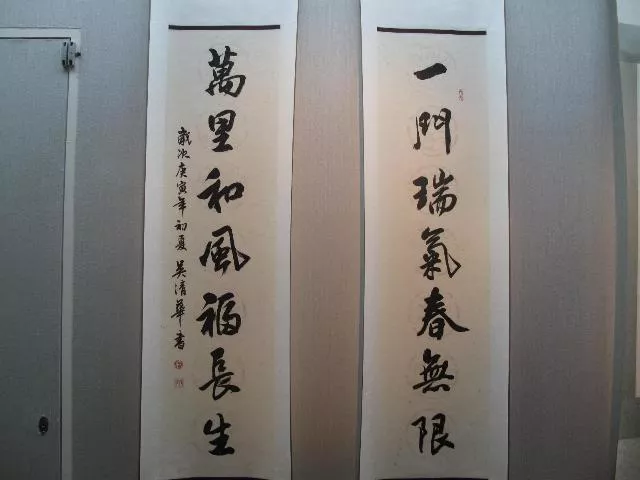 一門瑞氣春無限
萬里和風福長生
歲次庚寅年初夏 吴清華書